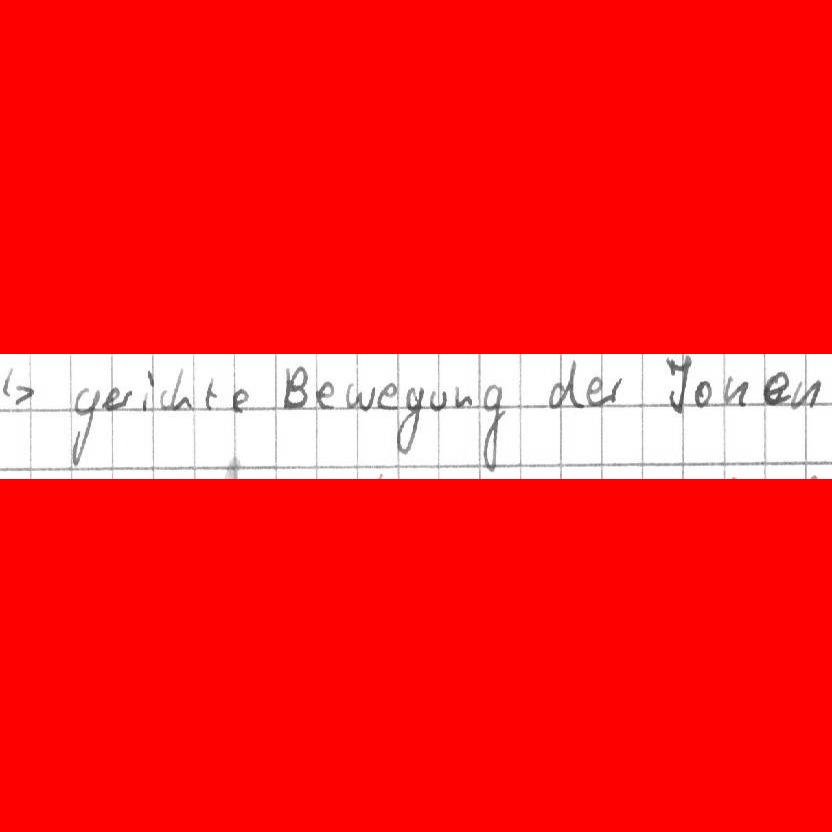 ↳ gerichte Bewegung der Jonen